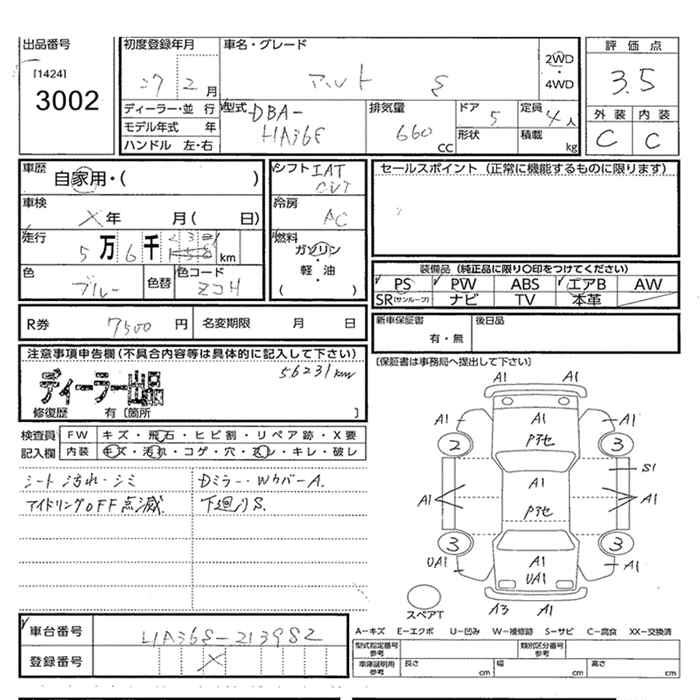 出品番号
[1424]
3002
初度登録年月
27 2 月
車名・グレード
アルト S
2WD
・
4WD
評価点
3.5
外装 内装
C C
ディーラー・並行
モデル年式 年
ハンドル 左・右
型式 DBA-
HA36S
排気量
660 CC
ドア 5
形状
定員 4 人
積載 kg
車歴
自家用・( )
車検
X 年 月( 日)
走行
5 万 6 千 km
色
ブルー
色替
色コード
ZCH
シフト IAT
CVT
冷房
AC
燃料
ガソリン
・
軽・油
( )
セールスポイント(正常に機能するものに限ります)
装備品(純正品に限り〇印をつけてください)
PS PW ABS エアB AW
SR(サンルーフ) ナビ TV 本革
R券 7500 円 名変期限 月 日
新車保証書
有・無
後日品
[保証書は事務局へ提出して下さい]
注意事項申告欄(不具合内容等は具体的に記入して下さい)
56231km
ディーラー出品
修復歴 有〔箇所 〕
検査員
記入欄
FW キズ・飛石・ヒビ割・リペア跡・X要
内装 キズ・汚れ・コゲ・穴・ヌレ・キレ・破レ
シート汚れ・シミ
アイドリングOFF点滅.
Dミラー・WカバーA.
下廻りS.
A1
A1
A1
A1
A1
Pアセ
2
3
S1
A1
A1
A1
Pアセ
3
3
UA1
A1
A1
UA1
A3
A1
スペアT
A-キズ E-エクボ U-凹み W-補修跡 S-サビ C-腐食 XX-交換済
車台番号 HA36S-213982
登録番号 X
型式指定番号
参考
類別区分番号
参考
車庫証明用
参考
長さ cm
幅 cm
高さ cm